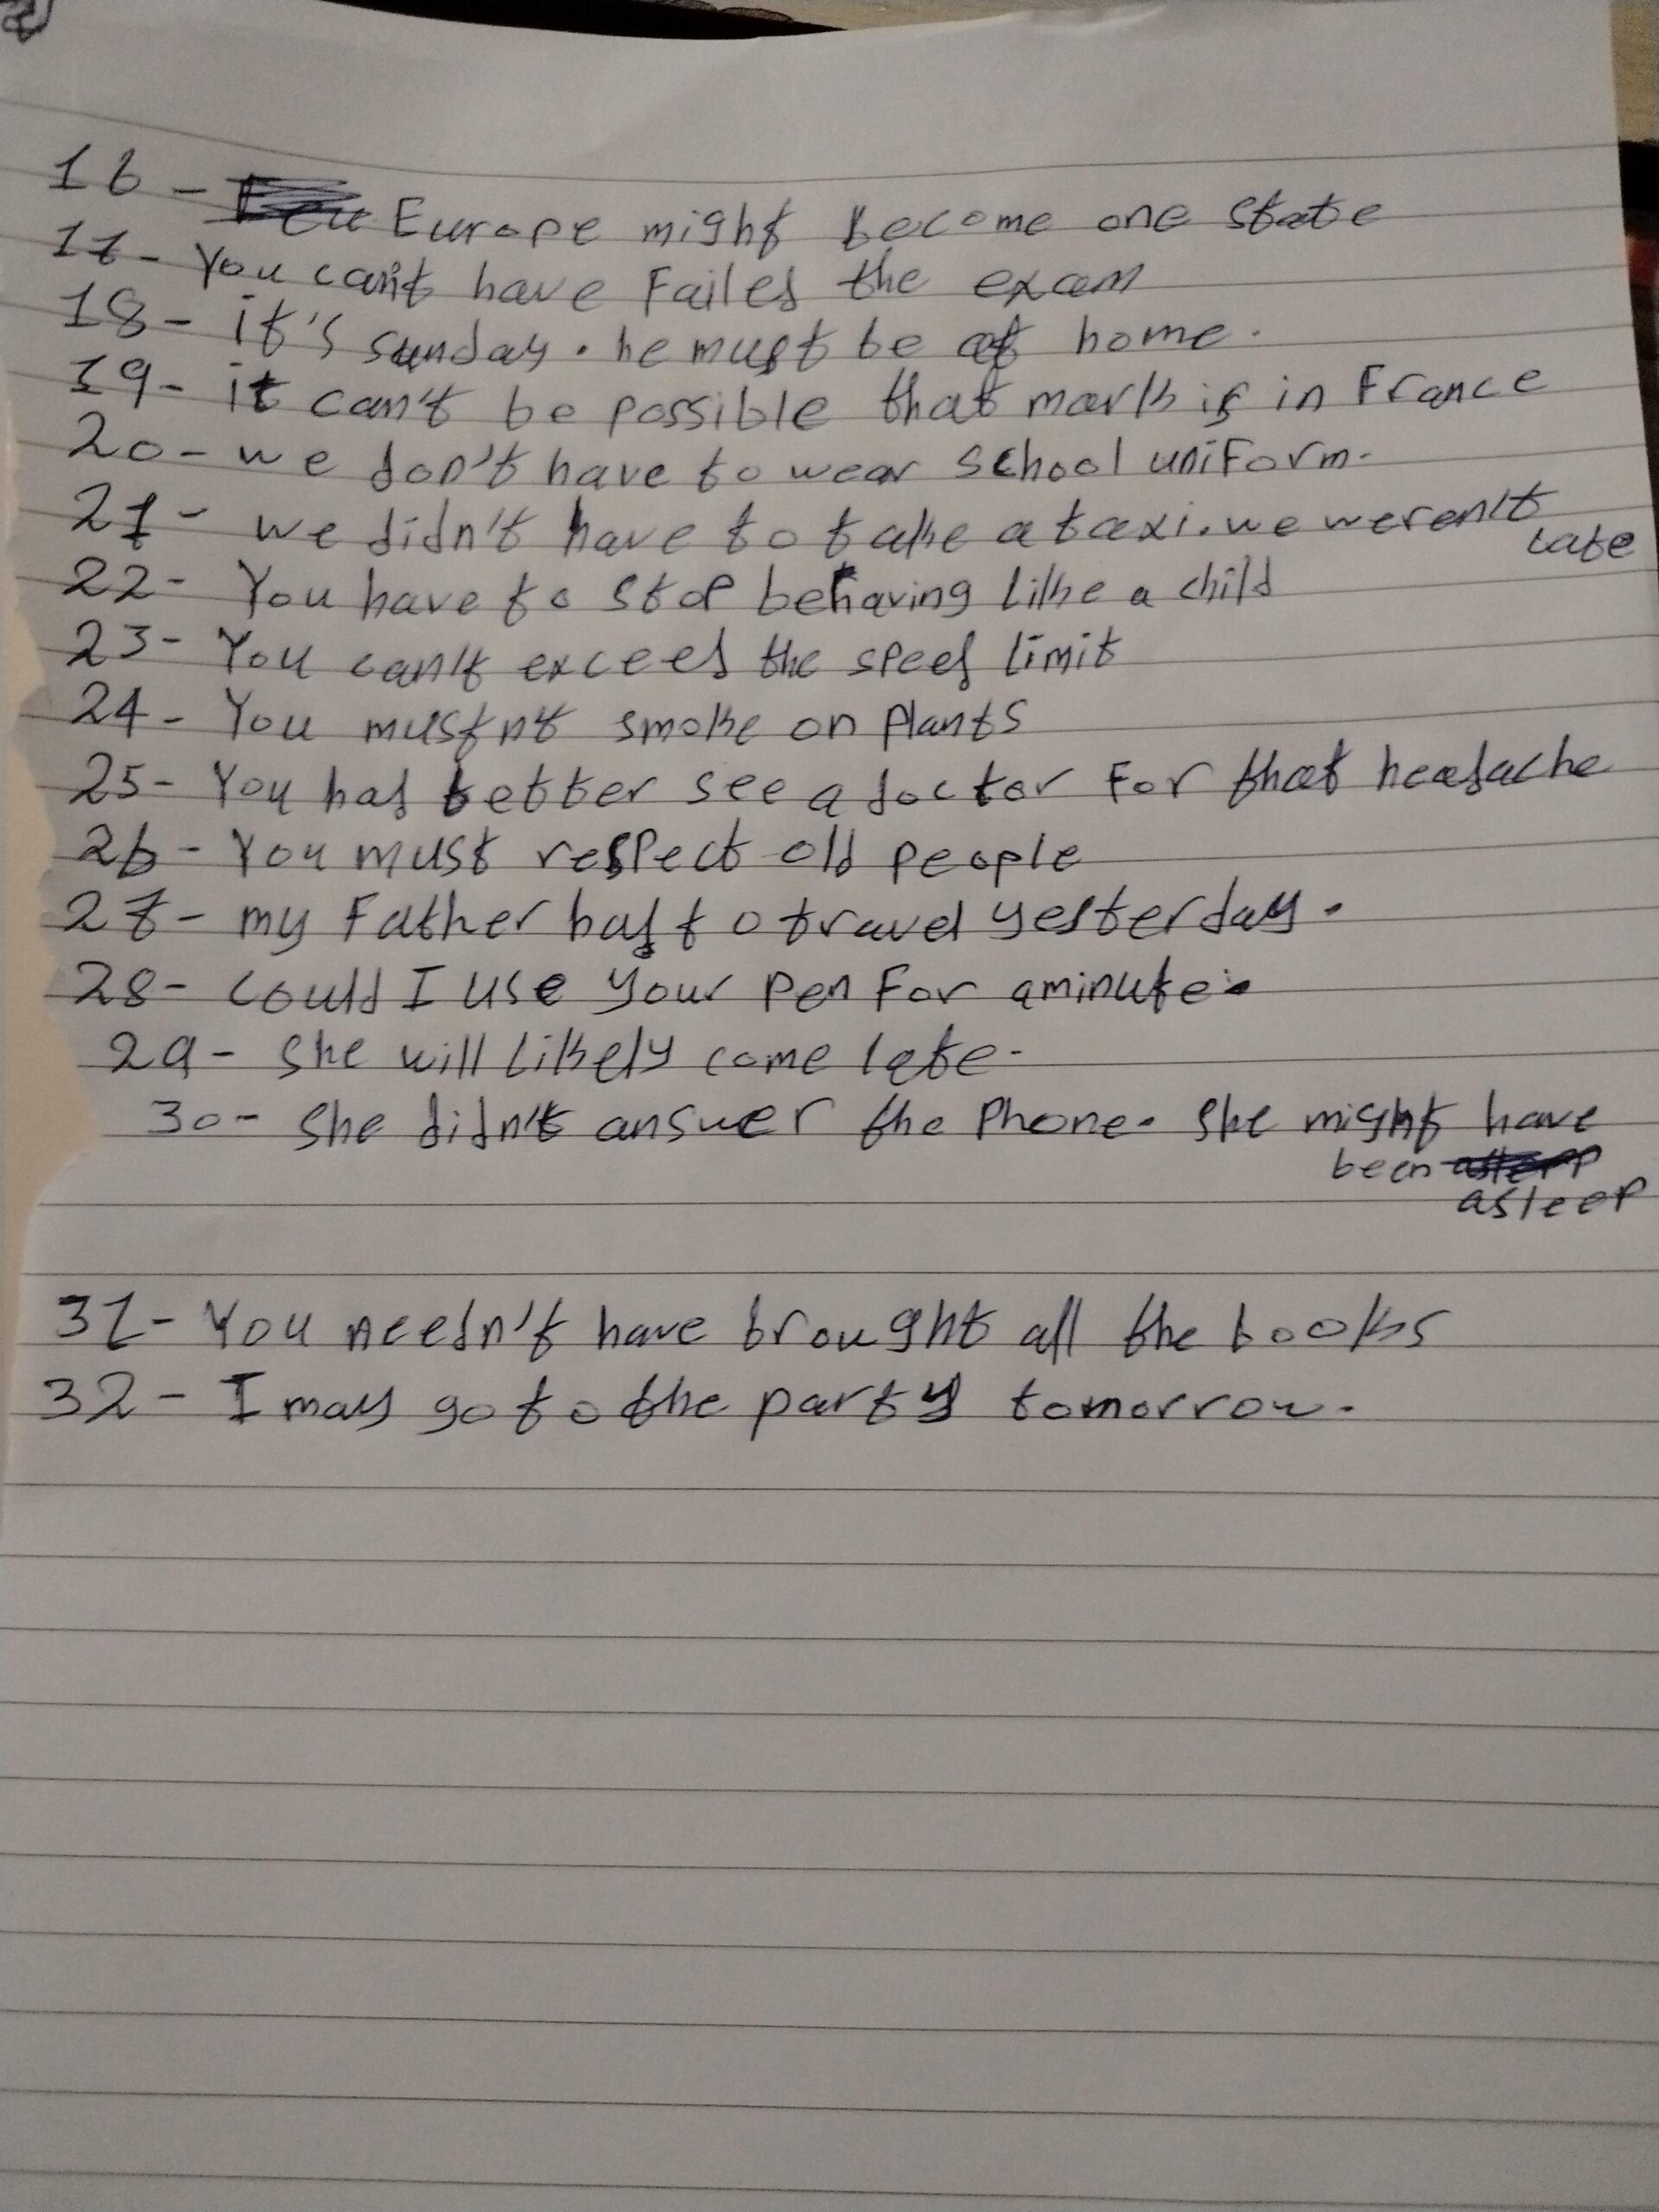 16 - Europe might become one state
17 - You can't have Failed the exam
18 - it's sunday. he must be at home.
19 - it can't be possible that mark is in France
20 - we don't have to wear school uniform.
21 - we didn't have to take a taxi. we weren't
late
22 - You have to stop behaving like a child
23 - You can't exceed the speed limit
24 - You mustn't smoke on plants
25 - You had better see a doctor For that headache
26 - You must respect old people
27 - my Father had to travel yesterday.
28 - could I use your pen For a minute.
29 - she will likely come late.
30 - she didn't answer the phone. she might have
been
asleep
31 - You needn't have brought all the books
32 - I may go to the party tomorrow.